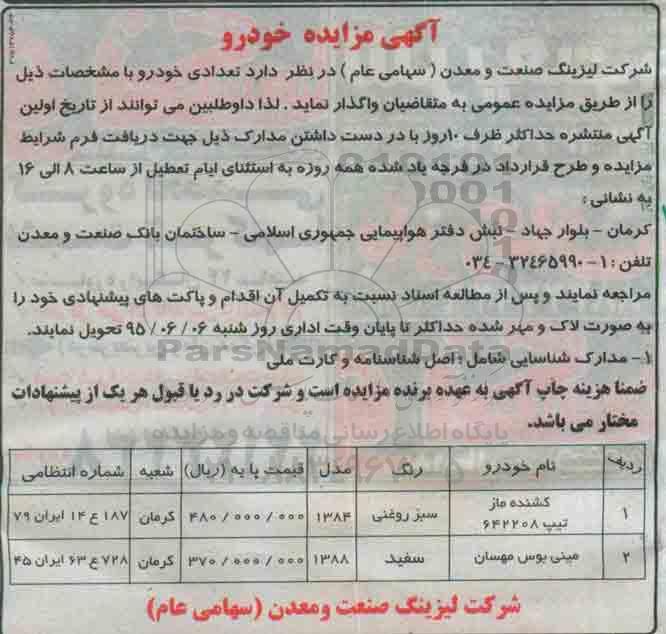 آگهی مزایده خودرو
شرکت لیزینگ صنعت و معدن ( سهامی عام ) در نظر دارد تعدادی خودرو با مشخصات ذیل
را از طریق مزایده عمومی به متقاضیان واگذار نماید . لذا داوطلبین می توانند از تاریخ اولین
آگهی منتشره حداکثر ظرف ۱۰روز با در دست داشتن مدارک ذیل جهت دریافت فرم شرایط
مزایده و طرح قرارداد در فرجه یاد شده همه روزه به استثنای ایام تعطیل از ساعت ۸ الی ۱۶
به نشانی :
کرمان - بلوار جهاد - نبش دفتر هواپیمایی جمهوری اسلامی - ساختمان بانک صنعت و معدن
تلفن : ۱ - ۳۲۴۶۵۹۹۰ - ۰۳۴
مراجعه نمایند و پس از مطالعه اسناد نسبت به تکمیل آن اقدام و پاکت های پیشنهادی خود را
به صورت لاک و مهر شده حداکثر تا پایان وقت اداری روز شنبه ۰۶ / ۰۶ / ۹۵ تحویل نمایند.
۱- مدارک شناسایی شامل : اصل شناسنامه و کارت ملی
ضمنا هزینه چاپ آگهی به عهده برنده مزایده است و شرکت در رد یا قبول هر یک از پیشنهادات
مختار می باشد.
ردیف نام خودرو رنگ مدل قیمت پایه (ریال) شعبه شماره انتظامی
۱ کشنده ماز تیپ ۶۴۲۲۰۸ سبز روغنی ۱۳۸۴ ۴۸۰ / ۰۰۰ / ۰۰۰ کرمان ۱۸۷ ع ۱۴ ایران ۷۹
۲ مینی بوس مهسان سفید ۱۳۸۸ ۳۷۰ / ۰۰۰ / ۰۰۰ کرمان ۷۲۸ ع ۶۳ ایران ۴۵
شرکت لیزینگ صنعت ومعدن (سهامی عام)
ParsNamadData
پایگاه اطلاع رسانی مناقصه و مزایده